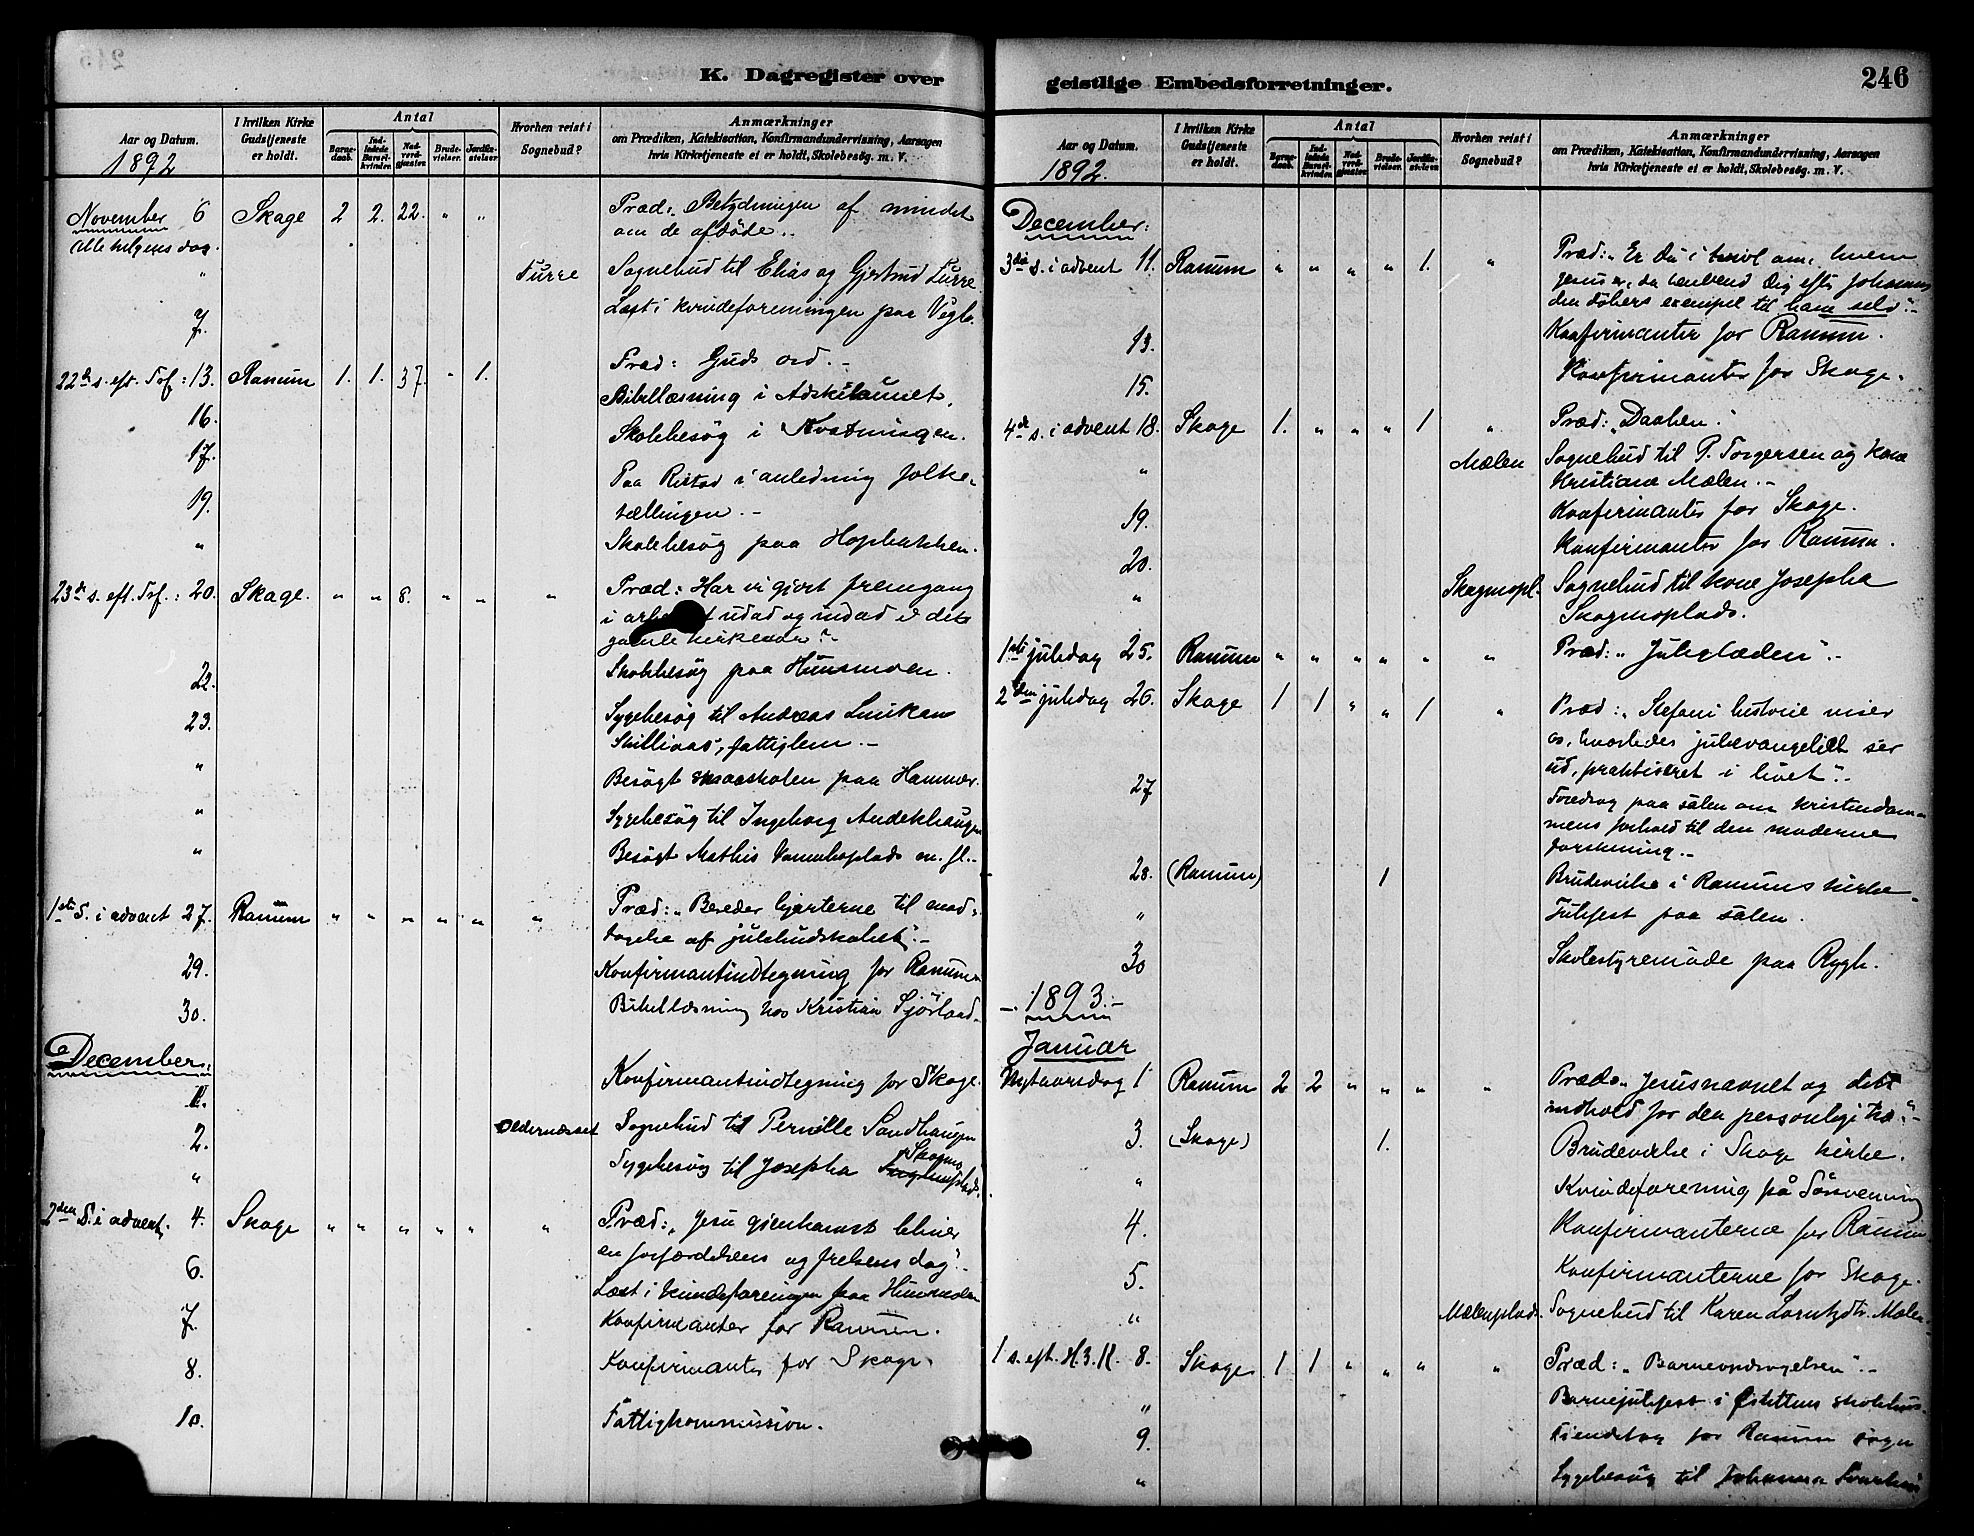 K. Dagregister over
Aar og Datum.
I hvilken Kirke Gudstjeneste er holdt.
Antal
Barnedaab.
Indledede Barselkvinder.
Nadverdgjester.
Brudevielser.
Jordfæstelser.
Hvorhen reist i Sognebud?
Anmærkninger
om Prædiken, Katekisation, Konfirmandundervisning, Aarsagen
hvis Kirketjeneste ei er holdt, Skolebesøg. m. V.
1892
November 6 Skage 2 2. 22. " " Præd: Betydningen af mindet
om de afdøde.
Alle helgens dag.
" Furre Sognebud til Elias og Gjertrud Furre.
7. Læst i kvindeforeningen paa
22de s. eft. Tref: 13. Ranum 1. 1. 37. " 1. Præd: Guds ord.-
Bibellæsning i
16. Skolebesøg i
17. Paa Ristad i anledning folke-
19. tællingen.-
" Skolebesøg paa Hopbakken.
23de s. eft. Tref.: 20. Skage. " " 8. " " " Præd: Har vi gjort fremgang
i udad og indad i det
gamle kirkeaar?-
22. Skolebesøg paa Hunsmoen.
23. Sygebesøg til Andreas
fattiglem.-
" Besøgt smaaskolen paa Hammer.
" Sygebesøg til Ingeborg
" Besøgt Mathis m. fl.-
1ste S. i advent 27. Ranum " " " " " " Præd: "Bereder hjerterne til mod-
tagelse af julebudskabet".-
29. Konfirmantindtegning for Ranum
30. Bibellæsning hos Kristian
December:
1. Konfirmantindtegning for Skage.
2. Oldernæsset Sognebud til Pernille Sandhaugen
" Sygebesøg til Josepha Skogmoplads.
2den S. i advent. 4. Skage " " " " " " Præd: "Jesu gjenkomst bliver
en forfærdelsens og frelsens dag".-
6. Læst i kvindeforeningen paa
7. Konfirmanter for Ranum.
8. Konfirmanter for Skage.
10. Fattigkommission.
geistlige Embedsforretninger.
246
Aar og Datum.
I hvilken Kirke Gudstjeneste er holdt.
Antal
Barnedaab.
Indledede Barselkvinder.
Nadverdgjester.
Brudevielser.
Jordfæstelser.
Hvorhen reist i Sognebud?
Anmærkninger
om Prædiken, Katekisation, Konfirmandundervisning, Aarsagen
hvis Kirketjeneste ei er holdt, Skolebesøg. m. V.
1892.
December:
3die S. i advent 11. Ranum " " " " 1. " Præd: "Er du i tvivl om, hvem
Jesus er, da henvend Dig efter Johannes
den døbers exempel til ham selv".-
13. Konfirmanter for Ranum.
15. Konfirmanter for Skage.
4de s. i advent 18. Skage 1. " " " 1 " Præd: "Daaben".
" Mælen Sognebud til P. Torgersen og kone
Kristiane Mælen.-
19. Konfirmanter for Skage.
20. Konfirmanter for Ranum.
" Skogmopl. Sognebud til kone Josepha
Skogmoplads.
1ste juledag 25. Ranum " " " " " " Præd: "Juleglæden".-
2den juledag 26. Skage 1 1 " " 1 " Præd: "Stefani historie viser
os, hvorledes juleevangeliet ser
ud, praktiseret i livet".-
27 Foredrag paa salen om kristendom-
mens forhold til den moderne
forskning.-
28. (Ranum) 1 Brudevielse i Ranums kirke.
" Julefest paa salen.
30 Skolestyremøde paa Rygh.
-. 1893.-
Januar
Nytaarsdag 1 Ranum 2 2 " " " " Præd: "Jesusnavnet og dets
indhold for den personlige tro".-
3. (Skage) 1. Brudevielse i Skage kirke.
" Kvindeforening på
4. Konfirmanterne for Ranum
5. Konfirmanterne for Skage.
" Mælenplads Sognebud til Karen Mælen
1 s. eft. H.3.K. 8. Skage 1 1 " " " " Præd: "Barneopdragelsen".-
" Barnejulefest i skolehus.
9. for Ranum sogn
" Sygebesøg til Johanna